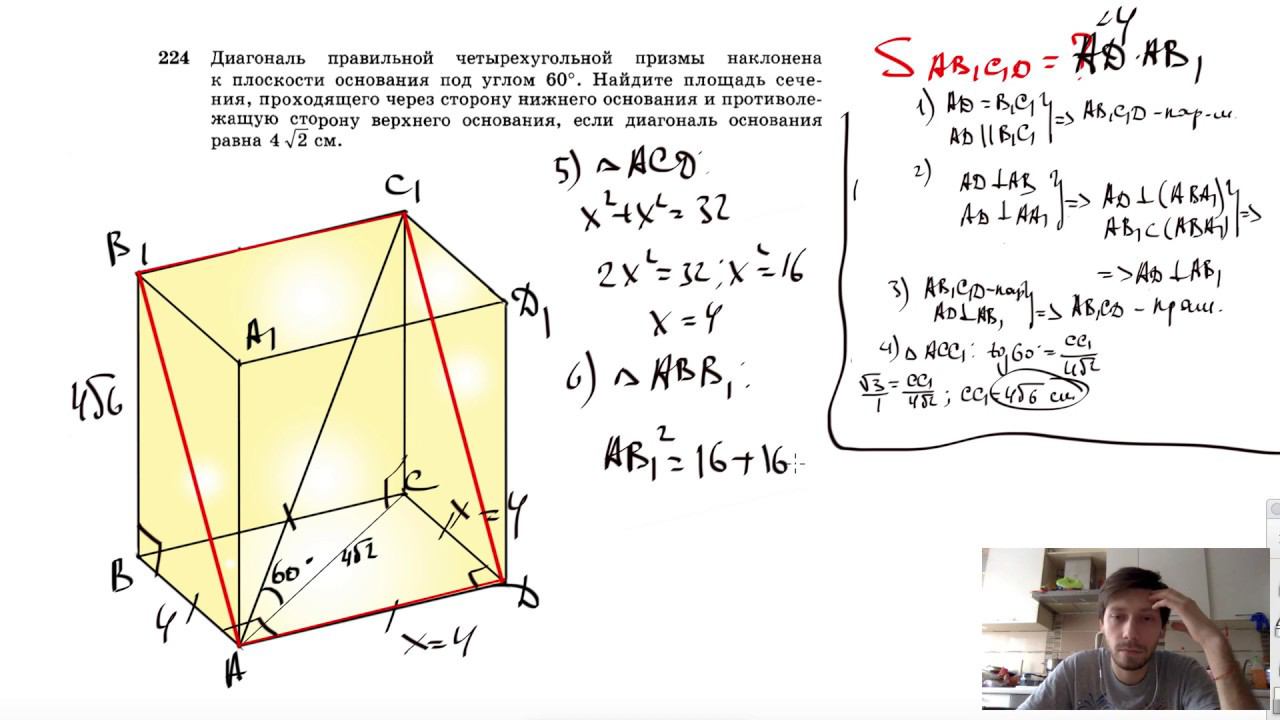 224 Диагональ правильной четырехугольной призмы наклонена
к плоскости основания под углом 60°. Найдите площадь сече-
ния, проходящего через сторону нижнего основания и противопо-
лежащую сторону верхнего основания, если диагональ основания
равна 4 √2 см.
S AB₁C₁D = ? AD · AB₁
=4
1) AD = B₁C₁
AD || B₁C₁ } => AB₁C₁D - пар-м.
2) AD ⊥ AB
AD ⊥ AA₁ } => AD ⊥ (ABA₁)
AB₁ ⊂ (ABA₁) } =>
=> AD ⊥ AB₁
3) AB₁C₁D - пар
AD ⊥ AB₁ } => AB₁CD - прям.
4) △ ACC₁: tg 60° = CC₁/4√2
√3/1 = CC₁/4√2 ; CC₁ = 4√6 см
5) △ ACD:
x² + x² = 32
2x² = 32; x² = 16
x = 4
6) △ ABB₁:
AB₁² = 16 + 16
C₁
B₁
D₁
A₁
4√6
C
x = 4
B
60°
4√2
4
D
x = 4
A